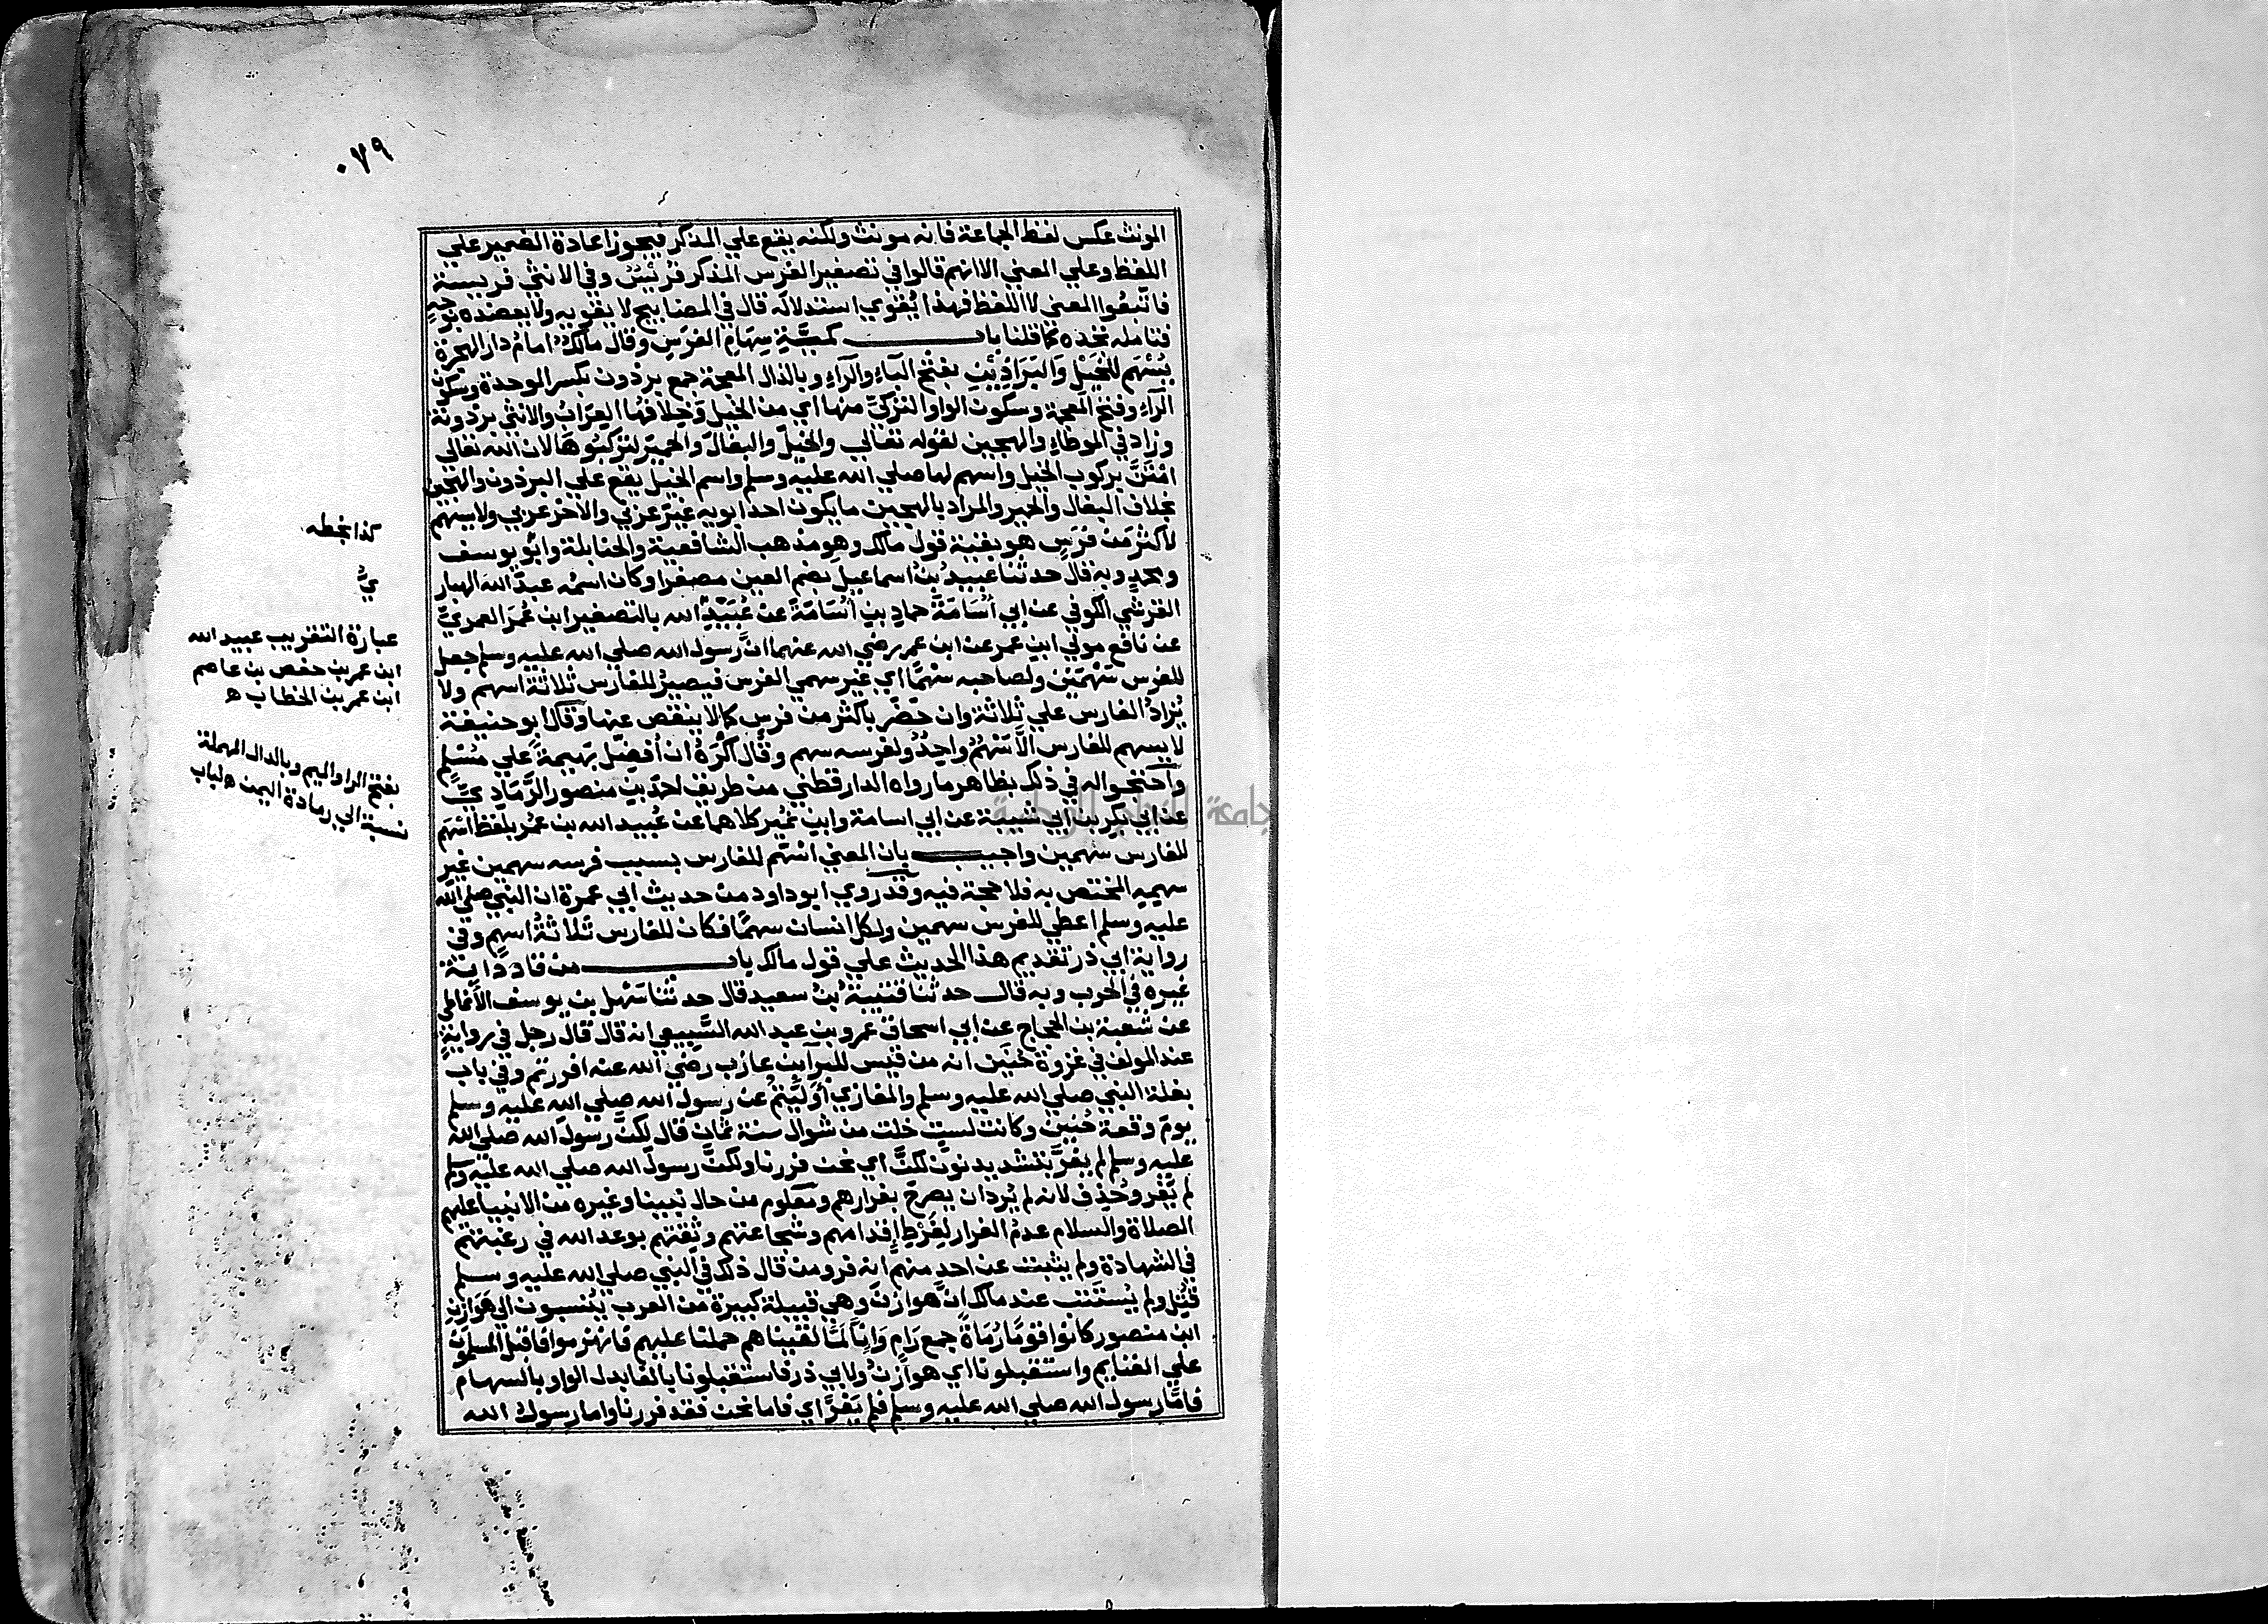 ٠٧٩
المونث عكس لفظ الجماعة فانه مونث ولكنه يقع علي المذكر فيجوز اعادة الضمير علي
اللفظ وعلي المعني الا انهم قالوا في تصغير الفرس المذكر فُرَيْسٌ وفي الانثي فريسة
فاتّبعُوا المعنى لا اللفظ فهذا يُقوي استدلاله قال في المصابيح لا يقويه ولا يعضده بوجهٍ
فتامله تجده كما قلنا باب كمِيَّةِ سِهَامِ الفَرَسِ وقال مالكٌ امامُ دار الهجرة
يُسْهَم للخَيْلِ وَالبَرَاذِيْنِ بفتح الباءِ والرآءِ وبالذال المعجمة جمع برذون بكسر الموحدة وسكون
الرآءِ وفتح المعجمة وسكون الواو التركيّ منها اي من الخيل وَخِلافُها العِرَابُ والانثي برذونة
وزاد في الموطاءِ والهجين لقوله تعالي والخيلَ والبغالَ والحميرَ لتركبُوهَا لان الله تعالي
امْتَنَّ بركوب الخيل واسهم لها صلي الله عليه وسلم واسم الخيل يقع علي البرذون والهجين
بخلاف البغال والحمير والمراد بالهجين ما يكون احد ابويه غيرَ عربي والآخر عربي ولا يسهم
لاكثرَ مَنْ فَرَسٍ هو بقية قول مالك وهو مذهب الشافعية والحنابلة وابُو يوسف
ومحمدٍ وبه قال حدثنا عبيدُ بنُ اسماعيل بضم العين مصغرا وكان اسمه عبدَ الله الهبار
القرشي الكوفي عن ابي اُسَامَةَ حمادِ بن اُسَامَةَ عَنْ عُبَيْدِ الله بالتصغير ابن عُمَر العمريّ
عن نافع مولي ابن عمر عن ابن عمر رضي الله عنهما انَّ رسول الله صلي الله عليه وسلم جعل
للفرس سَهْمَيْن ولصاحبه سَهْمًا اي غير سهمي الفرس فيصيرُ للفارس ثلاثة اسهم ولا
يُزادُ الفارس علي ثلاثة وان حَضَر باكثر من فرس كما لا ينقص عنها وَقال ابو حنيفة
لا يسهم للفارس الا سَهْمٌ واحِدٌ ولفرسه سهم وقال اكْرَهُ ان اُفضِّل بهيمةً علي مُسْلمٍ
واحتجوا له في ذلك بظاهر ما رواه الدارقطني من طريق احمدَ بن منصور الرَّمَادِيِّ
عن ابي بكر بن ابي شيبة عن ابي اسامة وابن نُمير كلاهما عن عُبيد الله بن عمُر بلفظ اسْهَم
للفارس سَهمين واجيب بان المعني اسْهَم للفارس بسبب فرسه سهمين غير
سهميه المختص به فلا حجة فيه وقد روي ابو داود من حديث ابي عمرة ان النبي صلي الله
عليه وسلم اعطي للفرس سهمين ولكل انسان سهمًا فكان للفارس ثَلاثةُ اسهم وفي
رواية ابي ذر تقديم هذا الحديث علي قول مالك باب من قاد دابّة
غيره في الحرب وبه قال حدثنا قتيبة بُن سعيد قال حدثنا سَهْل بن يوسف الأنماطي
عن شعبة بن الحجاج عن ابي اسحاق عمرو بن عبد الله السَّبيعي انه قال قال رجل في روايةٍ
عند المولف في غزوة حُنَين انه من قيس للبرآ بن عازب رضي الله عنه افررتم وفي باب
بغلة النبي صلي الله عليه وسلم والمغازي أوَلَّيْتُم عن رسول الله صلي الله عليه وسلم
يومَ وقعة حُنَين وكانت لست خلت من شوال سنة ثمان قال لكنَّ رسولَ الله صلي الله
عليه وسلم لم يفرَّ بتشديد نون لكنَّ اي نحن فررنا ولكنَّ رسولَ الله صلي الله عليه وسلم
لم يَفر وحُذِف لانه لم يُرد ان يصرح بفرارهم ومعلوم من حال نبينا وغيره من الانبيا عليهم
الصلاة والسلام عدمُ الفرار لِفَرْطِ إقدامهم وشجاعتهم وثِقتهم بوعد الله في رغبتهم
في الشهادة ولم يثبت عن احدٍ منهم انه فر ومن قال ذلك في النبي صلي الله عليه وسلم
قُتِل ولم يُستَتَب عند مالك انَّ هَوازنَ وهي قبيلة كبيرة من العرب يُنسبون الي هَوَازِن
ابن منصور كانوا قومًا رُمَاةً جمع رَامٍ وَاِنَّا لَمَّا لقيناهم حملنا عليهم فانهزموا فاقبل المسلمون
علي الغنايم واستقبلونا اي هوازنُ ولابي ذر فاستقبلونا بالفا بدل الواو بالسهام
فامَّا رسول الله صلي الله عليه وسلم فلم يَفرَّ اي فاما نحن فقد فررنا واما رسولُ الله
كذا بخطه
يّ
عبارة التقريب عبيد الله
ابن عمر بن حفص بن عاصم
ابن عمر بن الخطاب ه
بفتح الرا والميم وبالدال المهملة
نسبة الي رمادة اليمن ه لباب